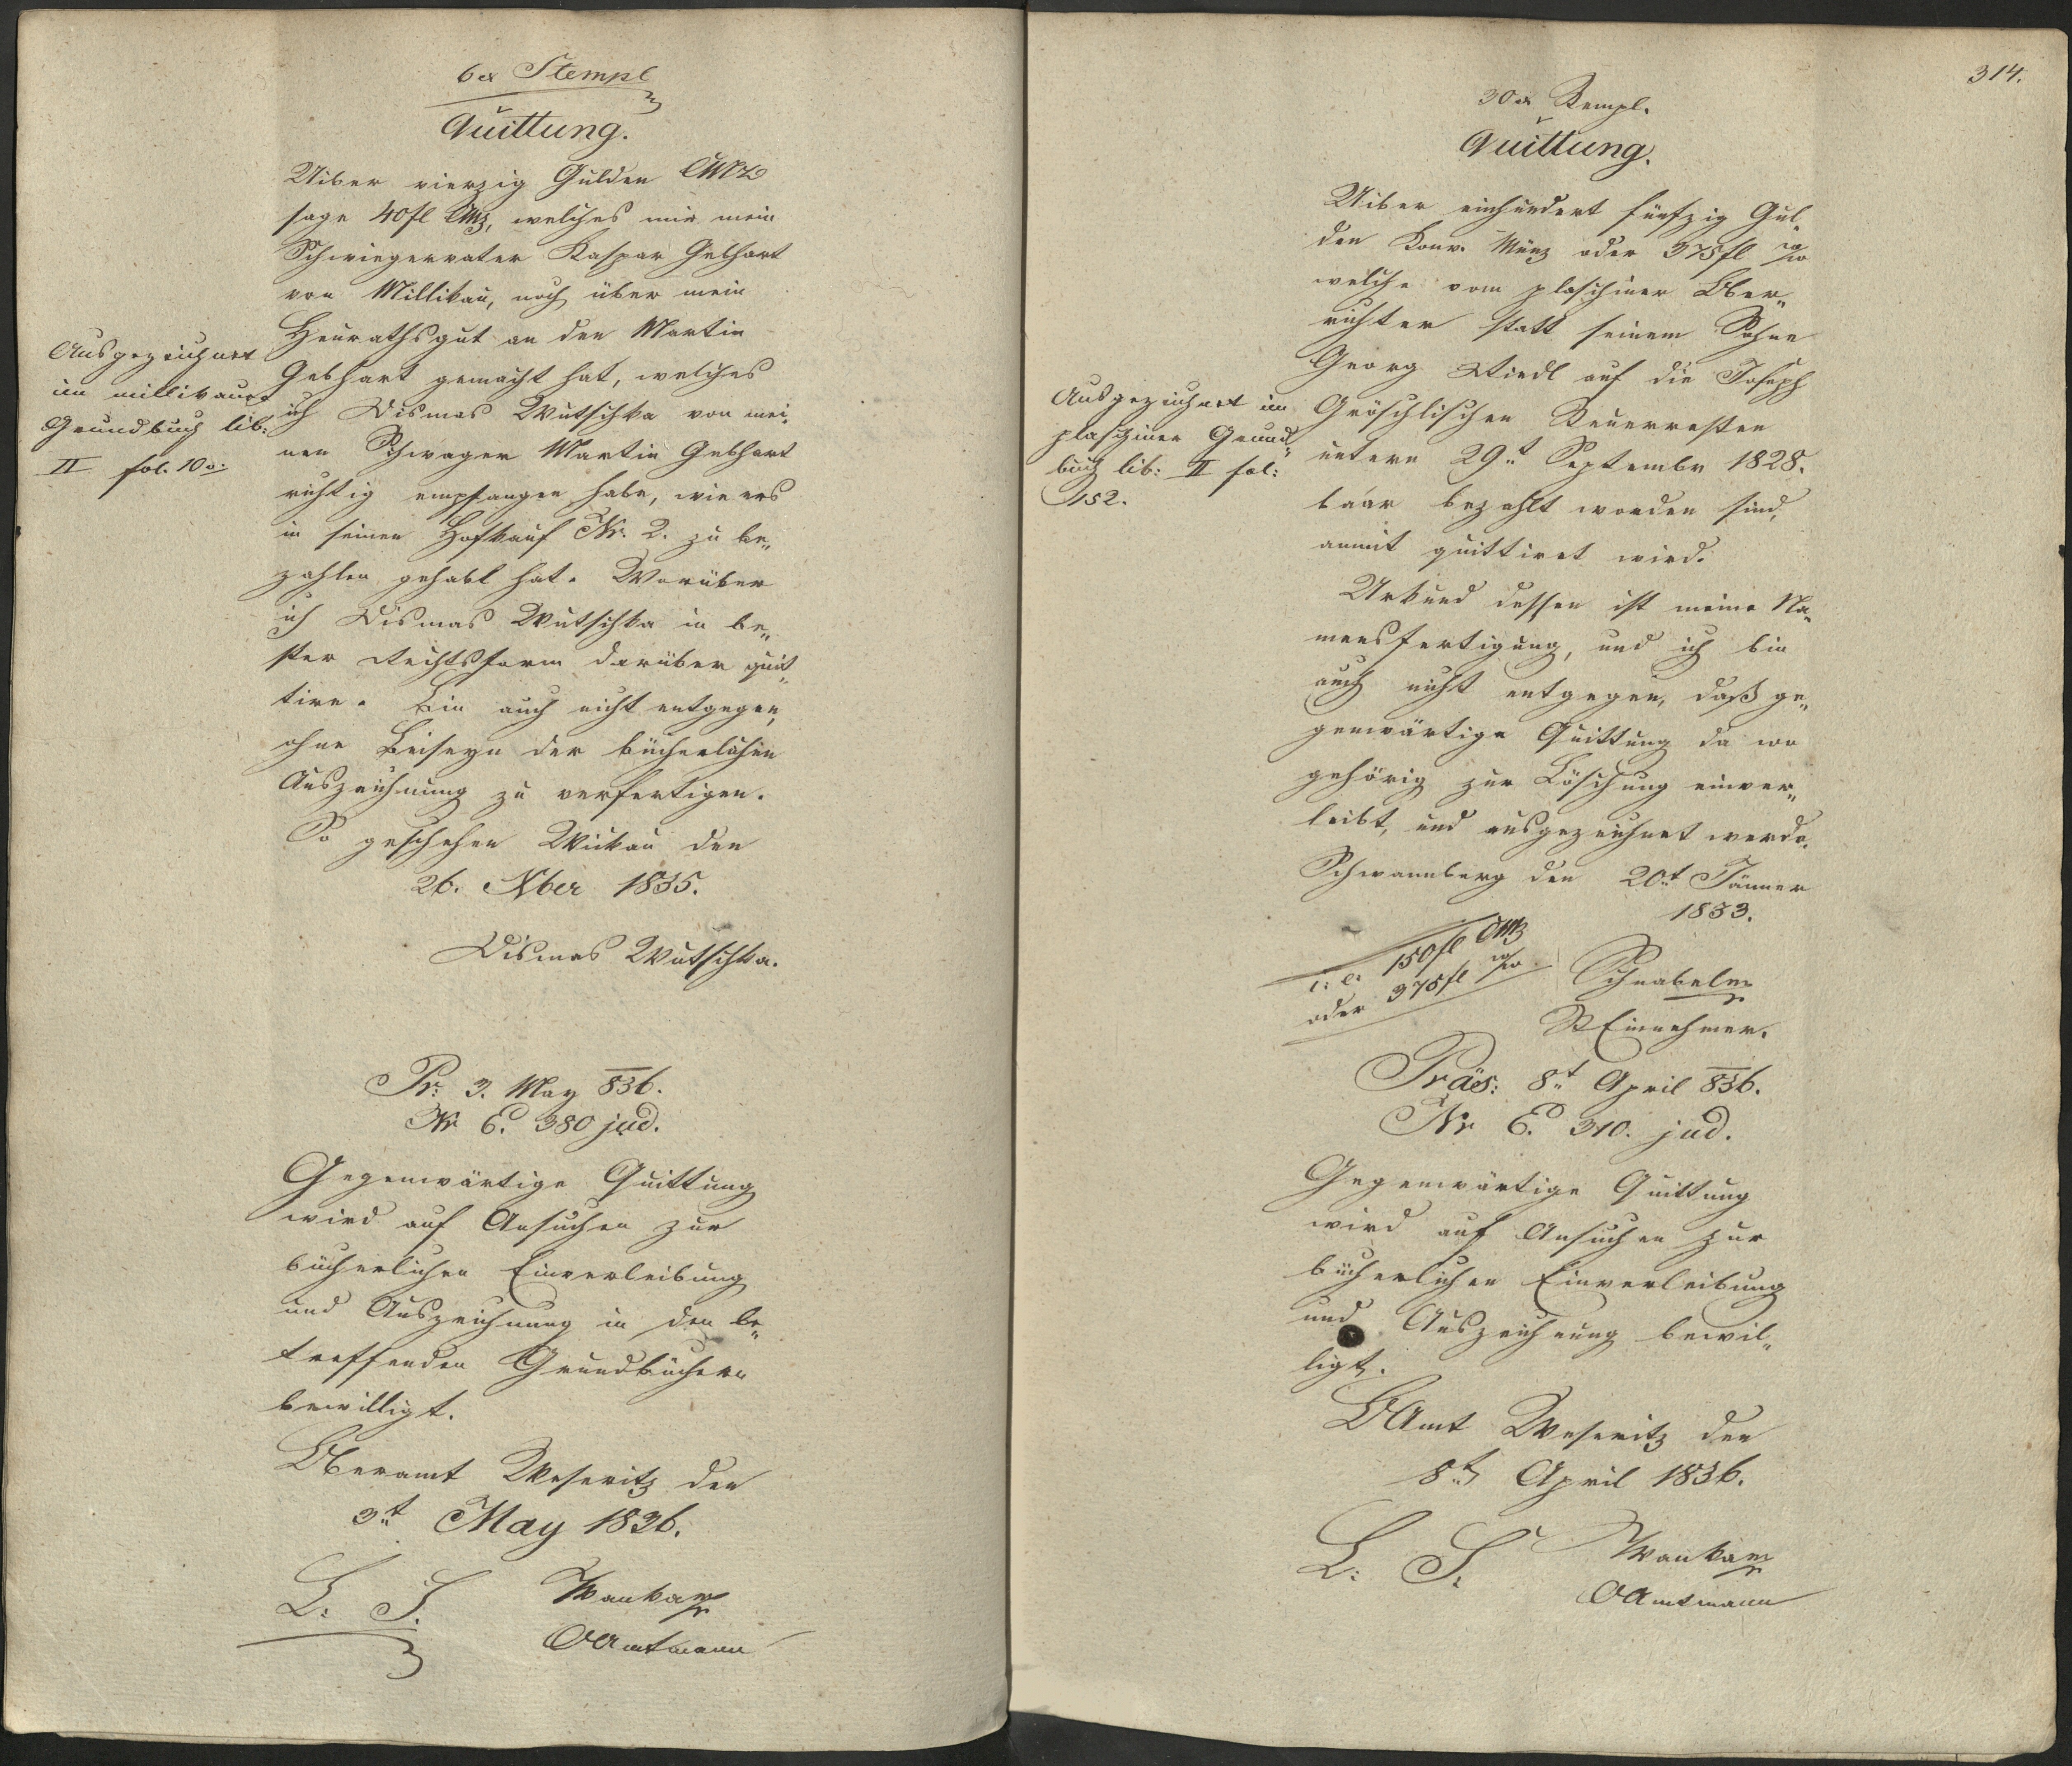 6 x Stempl
Quittung.
Uiber vierzig Gulden CMz
sage 40 fl CMz, welches mir mein
Schwiegervater Kaspar Gebhart
von Millikau, noch über mein
Heurathsgut an den Martin
Gebhart gemacht hat, welches
ich Dismas Wutschka von mei„
nen Schwager Martin Gebhart
richtig empfangen habe, wie ers
in seinen Hofkauf Nr. 2. zu be„
zahlen gehabt hat. Worüber
ich Dismas Wutschka in be„
ster Rechtsform darüber quit„
tire. Bin auch nicht entgegen,
ohne Beiseyn der bücherlichen
Auszeichnung zu verfertigen.
So geschehen Wickau den
26. Xber 1835.
Dismas Wutschka.
Ausgezeichnet
im millikauer
Grundbuch lib:
II fol. 10
Pr: 3. May 836.
Nr E. 380 jud.
Gegenwärtige Quittung
wird auf Ansuchen zur
bücherlichen Einverleibung
und Auszeichnung in den be„
treffenden Grundbüchern
bewilligt.
Oberamt Weseritz den
3t May 1836.
L: S. Wanka
OAmtmann
314.
30 x Stempl.
Quittung.
Uiber einhundert fünfzig Gul„
den Konv. Münz oder 375 fl
welche vom plaschiner Ober„
richter statt seinem Sohne
Georg Riedl auf die Joseph
Gröschlischen Steuerresten
untern 29t Septembr 1828.
baar bezahlt worden sind,
anmit quittiret wird.
Urkund dessen ist meine Na„
mensfertigung, und ich bin
auch nicht entgegen, daß ge„
genwärtige Quittung da wo
gehörig zur Löschung einver„
leibt, und ausgezeichnet werde.
Schwannberg den 20t Jänner
1833.
i: e: 150 fl CMz
oder 375 fl
Schnabel
StEinnehmer.
Ausgezeichnet im
plaschiner Grund„
buch lib: II fol:
152.
Präs: 8t April 836.
Nr E. 310. jud.
Gegenwärtige Quittung
wird auf Ansuchen zur
bücherlichen Einverleibung
und Auszeichnung bewil„
ligt.
OAmt Weseritz den
8t April 1836.
L: S. Wanka
OAmtmann